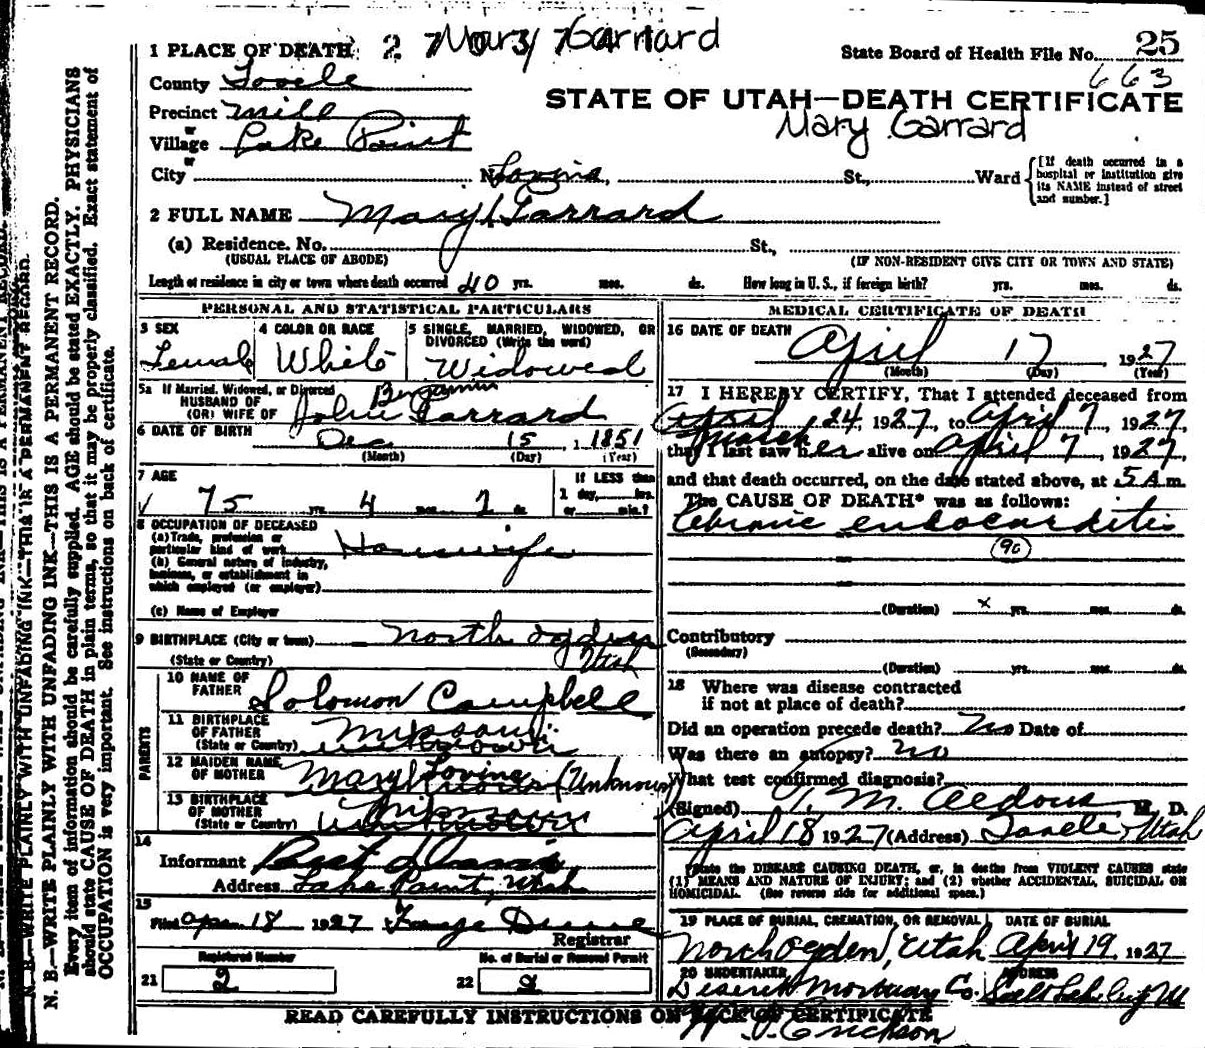 1 PLACE OF DEATH 2 7 0 3 7 4 1 Mary Garrard
State Board of Health File No. 25
663
County Tooele
STATE OF UTAH—DEATH CERTIFICATE
Precinct Mill
Mary Garrard
or
Village Lake Point
or
City No. St., Ward
[If death occurred in a hospital or institution give its NAME instead of street and number.]
2 FULL NAME Mary Garrard
(a) Residence. No. St.,
(USUAL PLACE OF ABODE) (IF NON-RESIDENT GIVE CITY OR TOWN AND STATE)
Length of residence in city or town where death occurred 40 yrs. mos. ds. How long in U. S., if foreign birth? yrs. mos. ds.
PERSONAL AND STATISTICAL PARTICULARS
3 SEX
Female
4 COLOR OR RACE
White
5 SINGLE, MARRIED, WIDOWED, OR DIVORCED (Write the word)
Widowed
5a If Married, Widowed, or Divorced
Benjamin
HUSBAND OF
(OR) WIFE OF John Garrard
6 DATE OF BIRTH Dec 15, 1851
(Month) (Day) (Year)
7 AGE
75 yrs. 4 mos. 2 ds.
If LESS than
1 day, hrs.
or min.?
8 OCCUPATION OF DECEASED
(a) Trade, profession or
particular kind of work Housewife
(b) General nature of industry,
business, or establishment in
which employed (or employer)
(c) Name of Employer
9 BIRTHPLACE (City or town) North Ogden
(State or Country) Utah
PARENTS
10 NAME OF
FATHER Solomon Campbell
11 BIRTHPLACE
OF FATHER Missouri
(State or Country) unknown
12 MAIDEN NAME
OF MOTHER Mary (Unknown)
13 BIRTHPLACE
OF MOTHER
(State or Country) unknown
14
Informant
Address Lake Point, Utah
15
Filed Apr 18 1927
Registrar
Registered Number
21 2
No. of Burial or Removal Permit
22 2
MEDICAL CERTIFICATE OF DEATH
16 DATE OF DEATH
April 17, 1927
(Month) (Day) (Year)
17 I HEREBY CERTIFY, That I attended deceased from
April 24, 1927, to April 7, 1927,
March
that I last saw her alive on April 7, 1927,
and that death occurred, on the date stated above, at 5 A.m.
The CAUSE OF DEATH* was as follows:
Chronic endocarditis
90
(Duration) x yrs. mos. ds.
Contributory
(Secondary)
(Duration) yrs. mos. ds.
18 Where was disease contracted
if not at place of death?
Did an operation precede death? No Date of
Was there an autopsy? no
What test confirmed diagnosis?
(Signed) T. M. Aldous M. D.
April 18 1927 (Address) Tooele, Utah
*State the DISEASE CAUSING DEATH, or, in deaths from VIOLENT CAUSES state
(1) MEANS AND NATURE OF INJURY; and (2) whether ACCIDENTAL, SUICIDAL OR
HOMICIDAL. (See reverse side for additional space.)
19 PLACE OF BURIAL, CREMATION, OR REMOVAL DATE OF BURIAL
North Ogden, Utah April 19, 1927
20 UNDERTAKER ADDRESS
Deseret Mortuary Co. Salt Lake City Ut
READ CAREFULLY INSTRUCTIONS ON BACK OF CERTIFICATE
Erickson
N. B.—WRITE PLAINLY WITH UNFADING INK—THIS IS A PERMANENT RECORD.
Every item of information should be carefully supplied. AGE should be stated EXACTLY. PHYSICIANS
should state CAUSE OF DEATH in plain terms, so that it may be properly classified. Exact statement of
OCCUPATION is very important. See instructions on back of certificate.